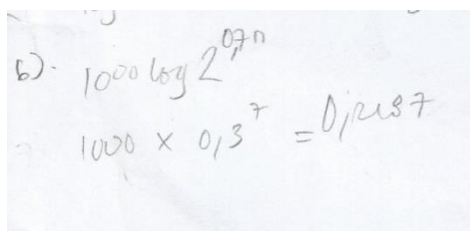 b). 1000 log 2^0,7n
1000 × 0,3^7 = 0,2187